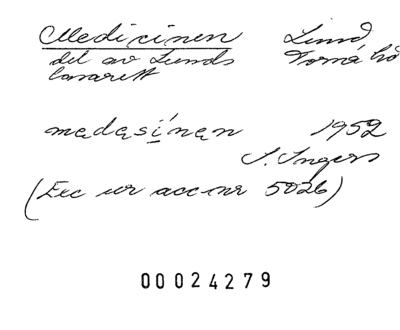 Medicinen Lund
del av Lunds Torna hd
lasarett
medəsínən 1952
S. Ingers
(Exc ur acc nr 5026)
00024279